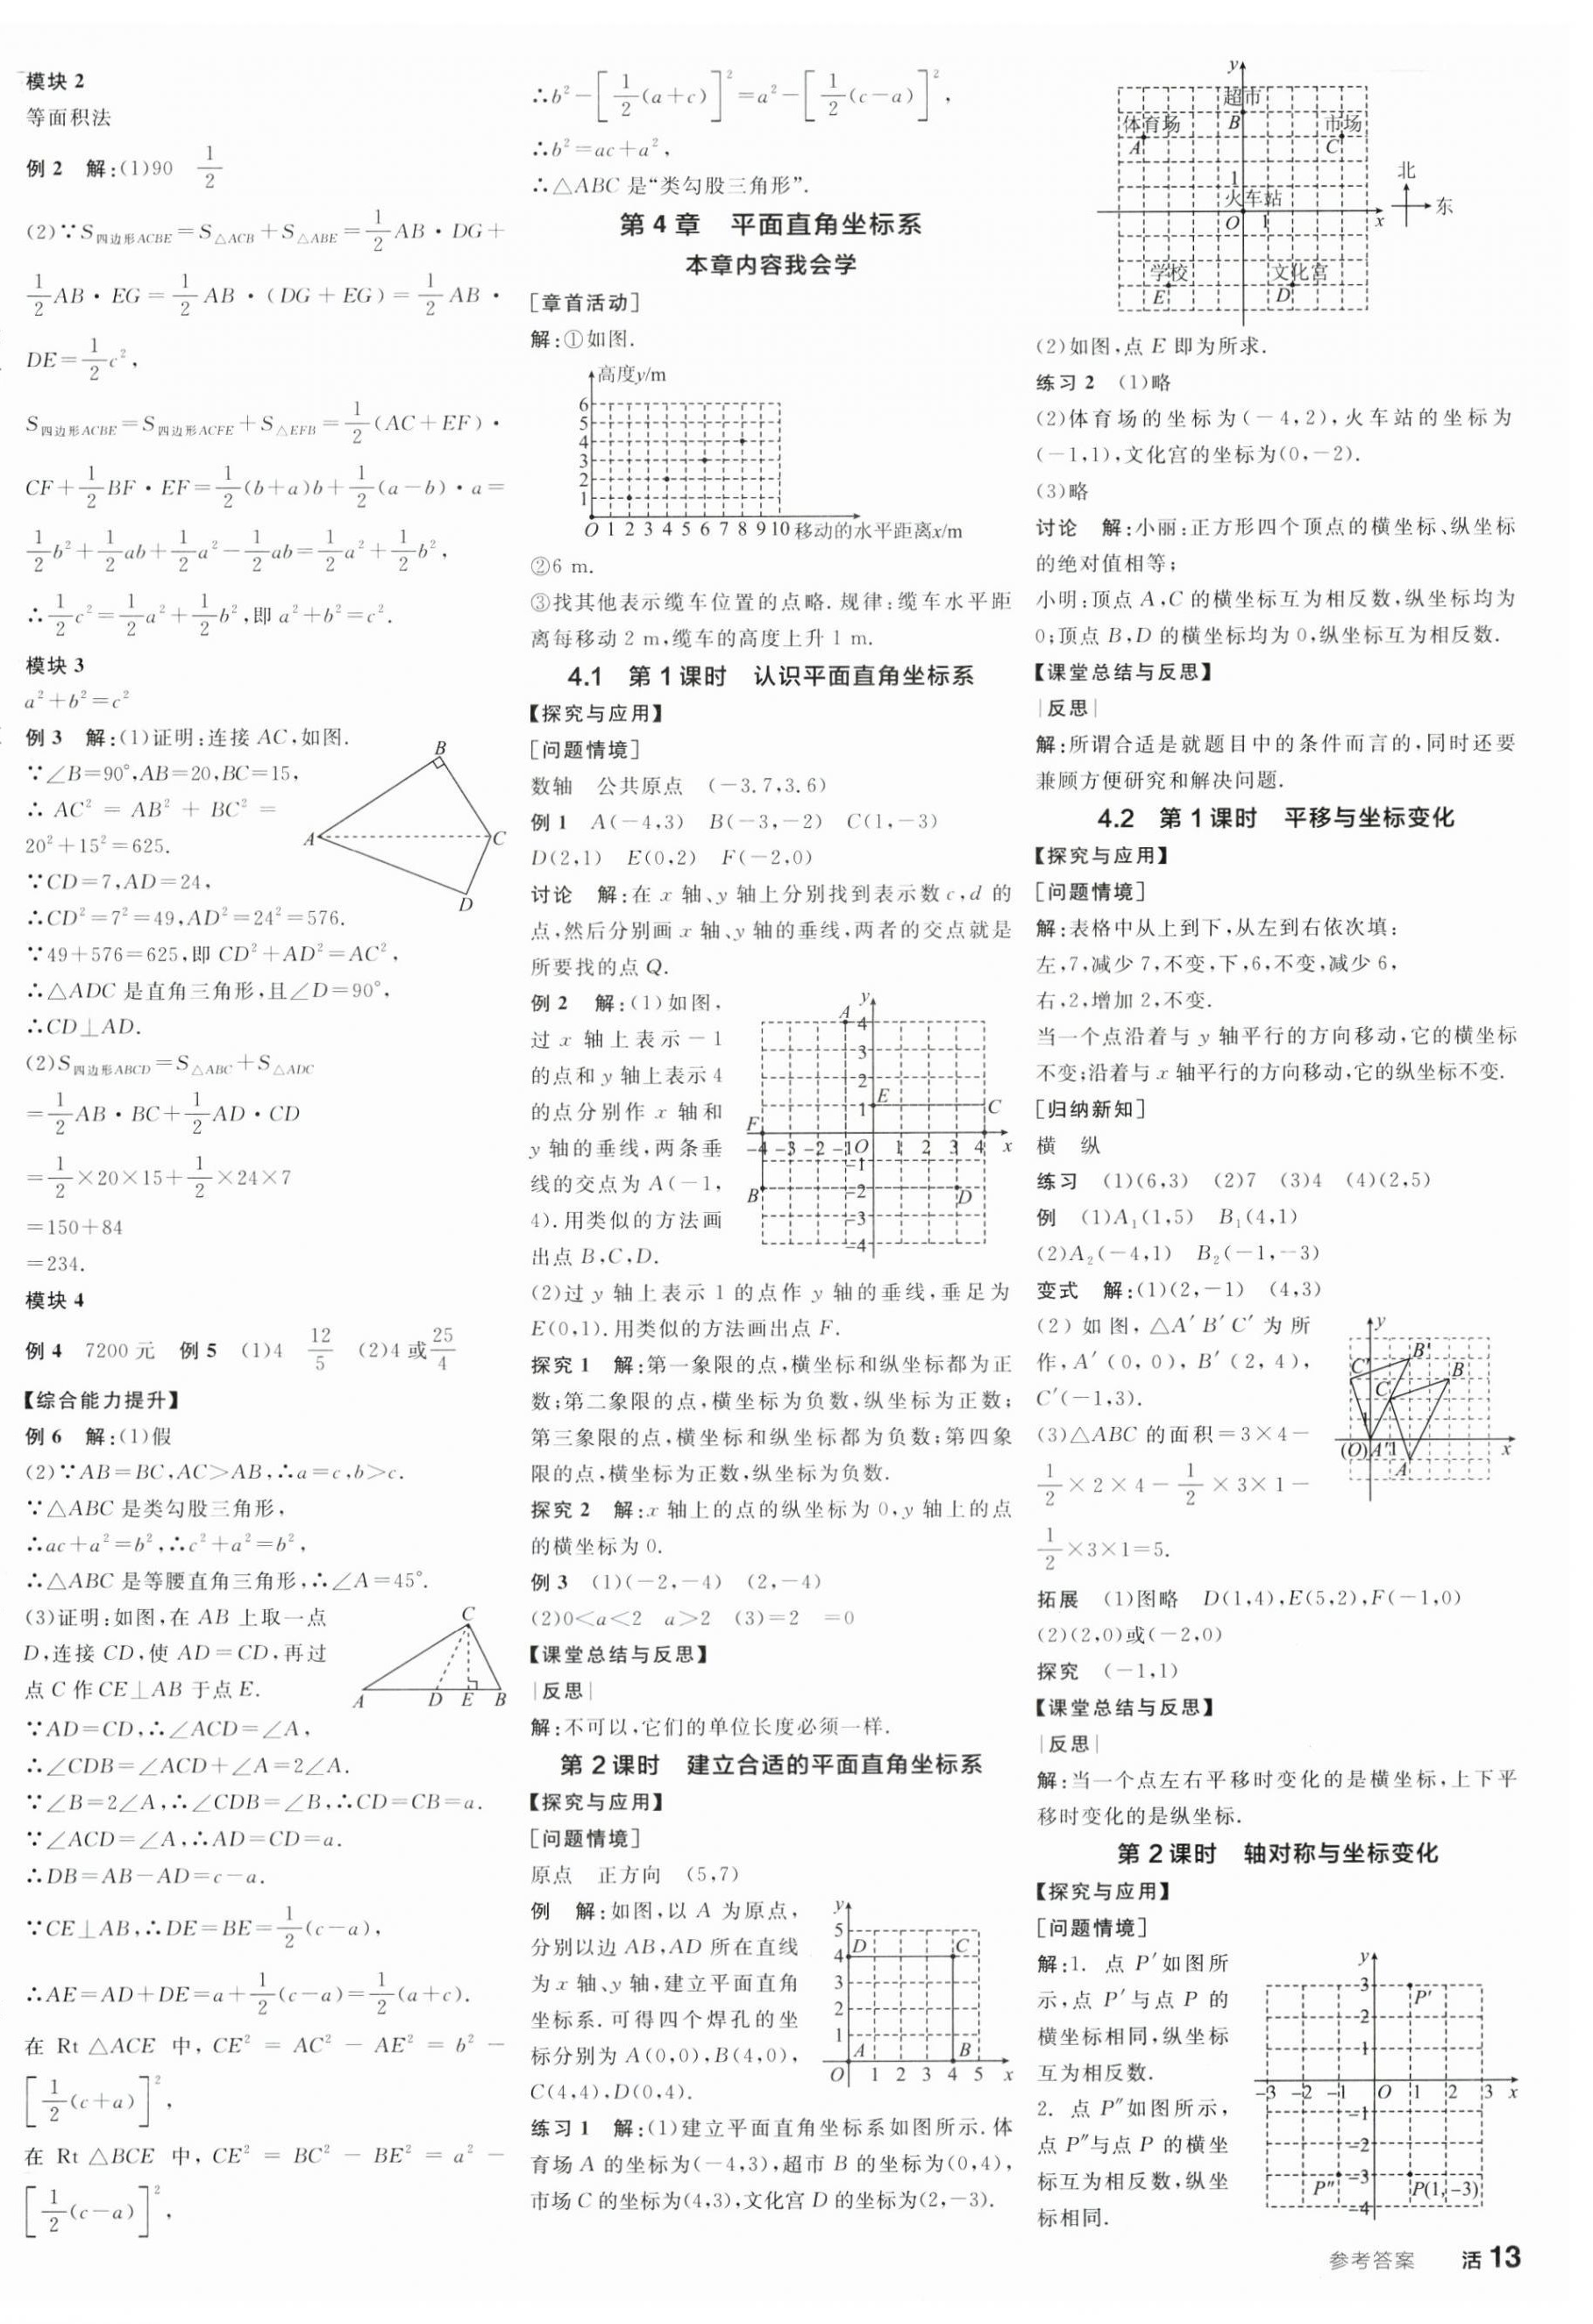 模块 2
等面积法
例 2 解:(1)90 1/2
(2)∵S四边形ACBE=S△ACB+S△ABE=1/2AB·DG+
1/2AB·EG=1/2AB·(DG+EG)=1/2AB·
DE=1/2c²,
S四边形ACBE=S四边形ACFE+S△EFB=1/2(AC+EF)·
CF+1/2BF·EF=1/2(b+a)b+1/2(a-b)·a=
1/2b²+1/2ab+1/2a²-1/2ab=1/2a²+1/2b²,
∴1/2c²=1/2a²+1/2b²,即 a²+b²=c².
模块 3
a²+b²=c²
例 3 解:(1)证明:连接 AC,如图.
∵∠B=90°,AB=20,BC=15,
∴ AC² = AB² + BC² =
20²+15²=625.
∵CD=7,AD=24,
∴CD²=7²=49,AD²=24²=576.
∵49+576=625,即 CD²+AD²=AC²,
∴△ADC 是直角三角形,且∠D=90°,
∴CD⊥AD.
(2)S四边形ABCD=S△ABC+S△ADC
=1/2AB·BC+1/2AD·CD
=1/2×20×15+1/2×24×7
=150+84
=234.
B
A
C
D
模块 4
例 4 7200 元 例 5 (1)4 12/5 (2)4 或25/4
【综合能力提升】
例 6 解:(1)假
(2)∵AB=BC,AC>AB,∴a=c,b>c.
∵△ABC 是类勾股三角形,
∴ac+a²=b²,∴c²+a²=b²,
∴△ABC 是等腰直角三角形,∴∠A=45°.
(3)证明:如图,在 AB 上取一点
D,连接 CD,使 AD=CD,再过
点 C 作 CE⊥AB 于点 E.
C
A D E B
∵AD=CD,∴∠ACD=∠A,
∴∠CDB=∠ACD+∠A=2∠A.
∵∠B=2∠A,∴∠CDB=∠B,∴CD=CB=a.
∵∠ACD=∠A,∴AD=CD=a.
∴DB=AB-AD=c-a.
∵CE⊥AB,∴DE=BE=1/2(c-a),
∴AE=AD+DE=a+1/2(c-a)=1/2(a+c).
在 Rt △ACE 中, CE² = AC² - AE² = b² -
[1/2(c+a)]²,
在 Rt △BCE 中, CE² = BC² - BE² = a² -
[1/2(c-a)]²,
∴b²-[1/2(a+c)]²=a²-[1/2(c-a)]²,
∴b²=ac+a²,
∴△ABC 是“类勾股三角形”.
第 4 章 平面直角坐标系
本章内容我会学
[章首活动]
解:①如图.
高度y/m
6
5
4
3
2
1
O 1 2 3 4 5 6 7 8 9 10 移动的水平距离x/m
②6 m.
③找其他表示缆车位置的点略. 规律:缆车水平距
离每移动 2 m,缆车的高度上升 1 m.
4.1 第 1 课时 认识平面直角坐标系
【探究与应用】
[问题情境]
数轴 公共原点 (-3.7,3.6)
例 1 A(-4,3) B(-3,-2) C(1,-3)
D(2,1) E(0,2) F(-2,0)
讨论 解:在 x 轴、y 轴上分别找到表示数 c,d 的
点,然后分别画 x 轴、y 轴的垂线,两者的交点就是
所要找的点 Q.
例 2 解:(1)如图,
过 x 轴上表示-1
的点和 y 轴上表示 4
的点分别作 x 轴和
y 轴的垂线,两条垂
线的交点为 A(-1,
4).用类似的方法画
出点 B,C,D.
y
A 4
3
2
1 E C
F
-4 -3 -2 -1 O 1 2 3 4 x
-1
B -2 D
-3
-4
(2)过 y 轴上表示 1 的点作 y 轴的垂线,垂足为
E(0,1).用类似的方法画出点 F.
探究 1 解:第一象限的点,横坐标和纵坐标都为正
数;第二象限的点,横坐标为负数,纵坐标为正数;
第三象限的点,横坐标和纵坐标都为负数;第四象
限的点,横坐标为正数,纵坐标为负数.
探究 2 解:x 轴上的点的纵坐标为 0,y 轴上的点
的横坐标为 0.
例 3 (1)(-2,-4) (2,-4)
(2)0<a<2 a>2 (3)=2 =0
【课堂总结与反思】
|反思|
解:不可以,它们的单位长度必须一样.
第 2 课时 建立合适的平面直角坐标系
【探究与应用】
[问题情境]
原点 正方向 (5,7)
例 解:如图,以 A 为原点,
分别以边 AB,AD 所在直线
为 x 轴、y 轴,建立平面直角
坐标系. 可得四个焊孔的坐
标分别为 A(0,0),B(4,0),
C(4,4),D(0,4).
y
5
4 D C
3
2
1 A B
O 1 2 3 4 5 x
练习 1 解:(1)建立平面直角坐标系如图所示. 体
育场 A 的坐标为(-4,3),超市 B 的坐标为(0,4),
市场 C 的坐标为(4,3),文化宫 D 的坐标为(2,-3).
y
超市
B
体育场
A
市场
C
1
火车站
O 1 x
学校
E
文化宫
D
北
东
(2)如图,点 E 即为所求.
练习 2 (1)略
(2)体育场的坐标为(-4,2),火车站的坐标为
(-1,1),文化宫的坐标为(0,-2).
(3)略
讨论 解:小丽:正方形四个顶点的横坐标、纵坐标
的绝对值相等;
小明:顶点 A,C 的横坐标互为相反数,纵坐标均为
0;顶点 B,D 的横坐标均为 0,纵坐标互为相反数.
【课堂总结与反思】
|反思|
解:所谓合适是就题目中的条件而言的,同时还要
兼顾方便研究和解决问题.
4.2 第 1 课时 平移与坐标变化
【探究与应用】
[问题情境]
解:表格中从上到下,从左到右依次填:
左,7,减少 7,不变,下,6,不变,减少 6,
右,2,增加 2,不变.
当一个点沿着与 y 轴平行的方向移动,它的横坐标
不变;沿着与 x 轴平行的方向移动,它的纵坐标不变.
[归纳新知]
横 纵
练习 (1)(6,3) (2)7 (3)4 (4)(2,5)
例 (1)A₁(1,5) B₁(4,1)
(2)A₂(-4,1) B₂(-1,-3)
变式 解:(1)(2,-1) (4,3)
(2) 如图, △A′B′C′ 为所
作, A′(0,0), B′(2,4),
C′(-1,3).
(3)△ABC 的面积=3×4-
1/2×2×4-1/2×3×1-
1/2×3×1=5.
y
B′
C′
B
C
1
(O)A′ 1 x
A
拓展 (1)图略 D(1,4),E(5,2),F(-1,0)
(2)(2,0)或(-2,0)
探究 (-1,1)
【课堂总结与反思】
|反思|
解:当一个点左右平移时变化的是横坐标,上下平
移时变化的是纵坐标.
第 2 课时 轴对称与坐标变化
【探究与应用】
[问题情境]
解:1. 点 P′如图所
示,点 P′与点 P 的
横坐标相同,纵坐标
互为相反数.
2. 点 P″如图所示,
点 P″与点 P 的横坐
标互为相反数,纵坐
标相同.
y
3 P′
2
1
-3 -2 -1 O 1 2 3 x
-1
-2
P″ -3 P(1,-3)
-4
参考答案 活 13